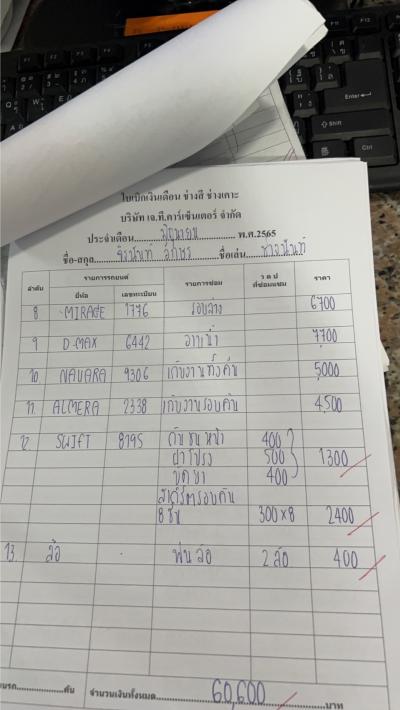 ใบเบิกเงินเดือน ช่างสี ช่างเคาะ
บริษัท เจ.ที.คาร์เซ็นเตอร์ จำกัด
ประจำเดือน มิถุนายน พ.ศ.2565
ชื่อ-สกุล จิรนันท์ ชื่อเล่น ช่างนันท์
ลำดับ รายการรถยนต์ รายการซ่อม ว ด ป ที่ซ่อมแซม ราคา
ยี่ห้อ เลขทะเบียน
8 MIRAGE 1776 รอบล่าง 6700
9 D-MAX 6442 อาบน้ำ 7700
10. NAVARA 9306 เก็บงานทั้งคัน 5,000
11. ALMERA 2338 เก็บงานรอบคัน 4,500
12. SWIFT 8795 กันชนหน้า 400
ฝาโปรง 500 1300
400
รอบคัน
8 ชิ้น 300×8 2400
13. ล้อ พ่นล้อ 2 ล้อ 400
คัน จำนวนเงินทั้งหมด 60,600 บาท